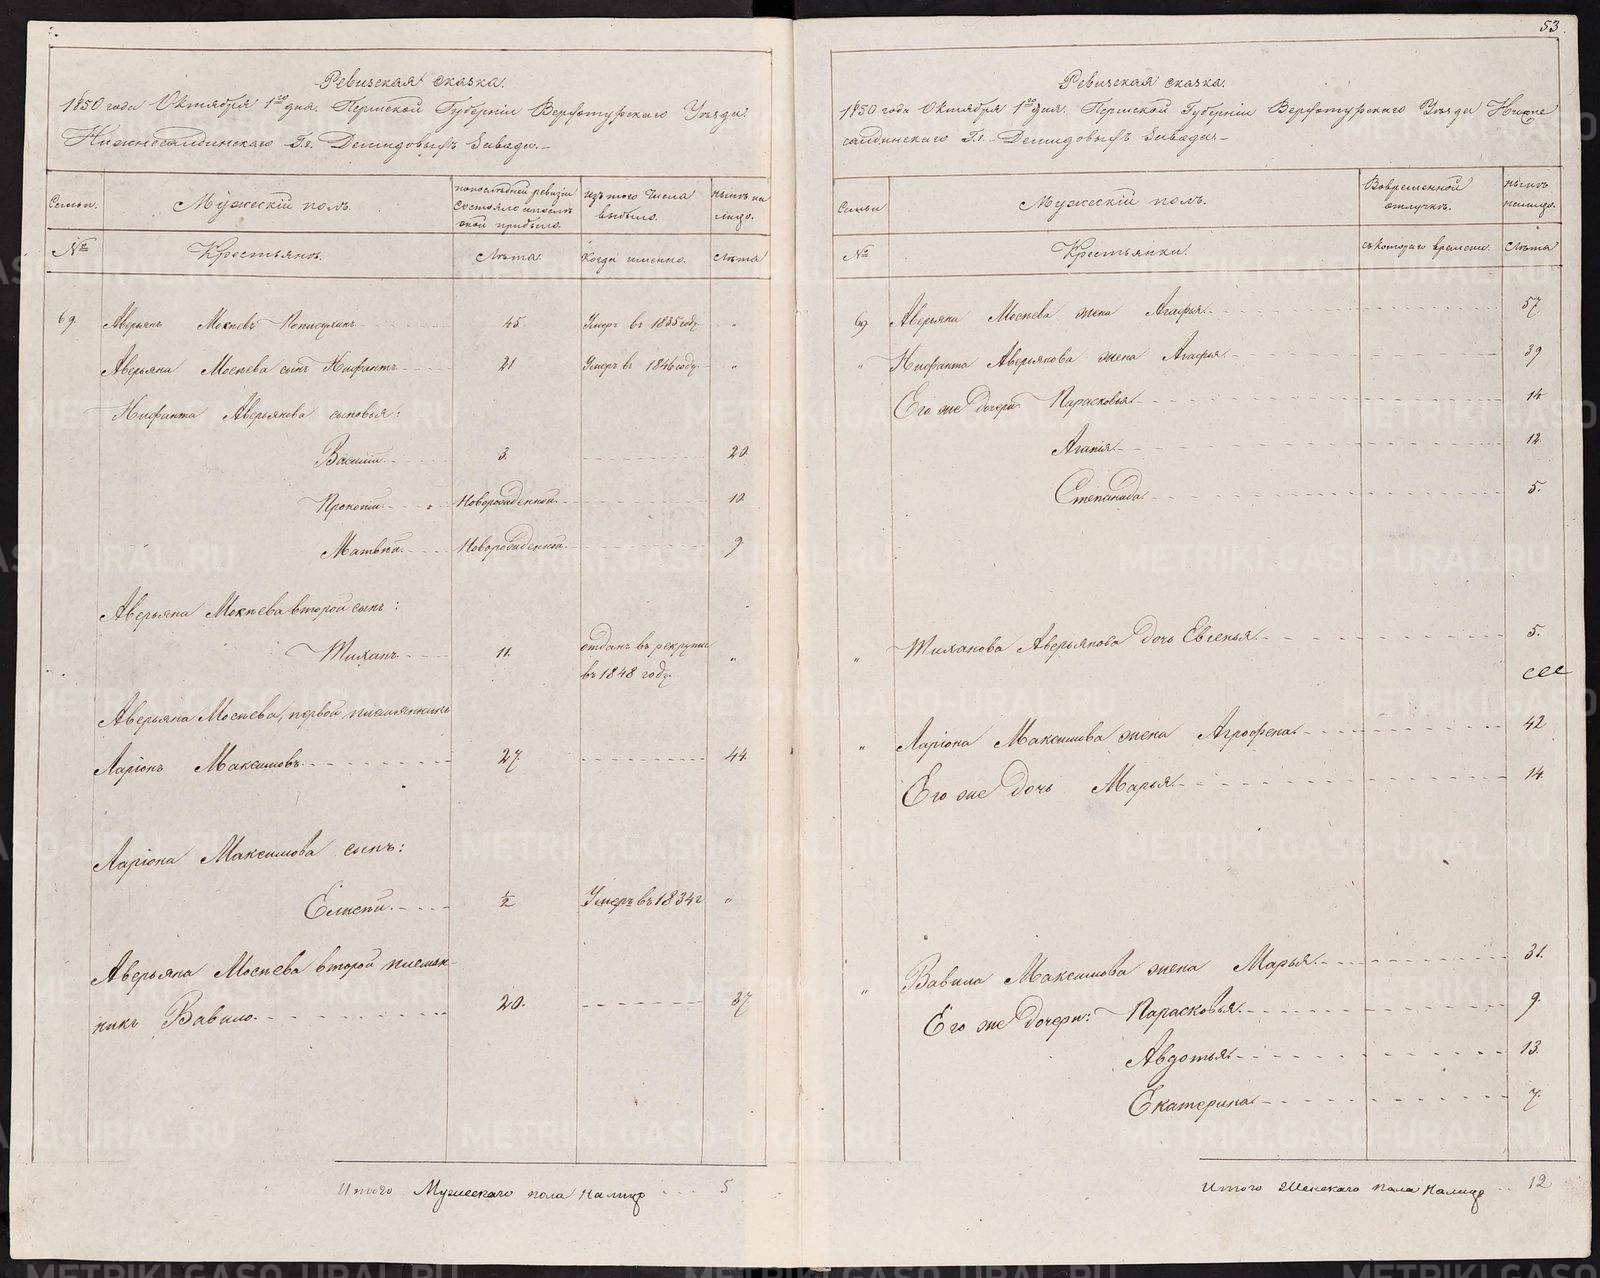 53
Ревизская сказка.
1850 года Октября 1го дня. Пермской Губерніи Верхотурскаго Уѣзда
Нижнесалдинскаго Г.г. Демидовыхъ Завода.
Семьи.
Мужескій полъ.
попослѣдней ревизіи
состояло ипослѣ
оной прибыло.
изъ того числа
выбыло.
нынѣ на
лицо.
№
Крестьянъ.
Лѣта.
Когда именно.
Лѣта
69. Аверьянъ Мокѣевъ 45 Умеръ въ 1835 году. "
Аверьяна Мокѣева сынъ Нифантъ 21 Умеръ въ 1846 году. "
Нифанта Аверьянова сыновья:
Василій 3. 20
Прокопій Новорожденной 10
Матвѣй Новорожденной 9
Аверьяна Мокѣева второй сынъ:
Тиханъ 11. отданъ въ рекруты
въ 1848 году. "
Аверьяна Мокѣева, первой племянникъ
Ларіонъ Максимовъ 27 44
Ларіона Максимова сынъ:
Елисѣй 1/2 Умеръ въ 1834 г "
Аверьяна Мокѣева второй племян-
никъ Вавило 20. 37
Итого Мужескаго пола налицо 5
Ревизская сказка.
1850 года Октября 1го дня. Пермской Губерніи Верхотурскаго Уѣзда Нижне
салдинскаго Г.г. Демидовыхъ Завода.
Семьи
Мужескій полъ.
Вовременной
отлучкѣ.
нынѣ
налицо.
№
Крестьянки.
съкотораго времени.
Лѣта
69 Аверьяна Мокѣева жена Агафья 57
" Нифанта Аверьянова жена Агафья 39
Его же дочери Парасковья 14
Агапія 12
Степанида 5.
" Тиханова Аверьянова дочь Евгенья 5.
" Ларіона Максимова жена Агрофена 42
Его же дочь Марья 14
" Вавила Максимова жена Марья 31.
Его же дочери: Парасковья 9.
Авдотья 13.
Екатерина 7.
Итого Женскаго пола налицо 12
METRIKI.GASO-URAL.RU